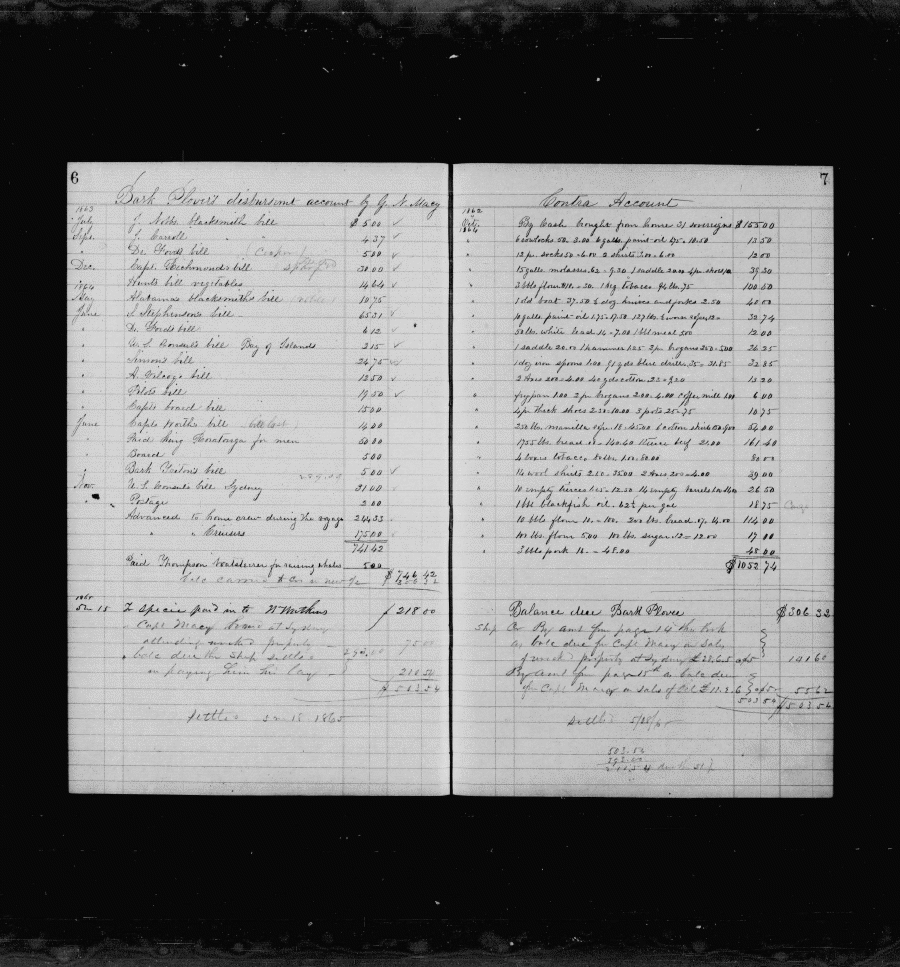 6
Bark Plover's disbursmt account by G. N. Macy
1863
July J. Nobbs blacksmith bill $ 5.00
Sept. J. Carroll " 4.37
" Dr. Fords bill (Cooper) 5.00
Dec. Capt. Richmonds bill 30.00
" Hunts bill vegetables 14.64
1864
May Alabama blacksmiths bill 10.75
June S. Stephenson's bill 65.31
" Dr. Fords bill 6.12
" U. S. Consuls bill Bay of Islands 2.15
" Simon's bill 24.75
" A. bill 12.50
" Pilots bill 19.50
" Capts board bill 15.00
June Capts Worths bill 14.00
" Paid King Roratonga for men 60.00
" Board 5.00
" Bark bill 5.00
Nov. U. S. Consuls bill Sydney 31.00
" Postage 2.00
Advanced to home crew during the voyage 244.33
" " Cruisers 175.00
741.42
Paid Thompson boatsteerer for raising whales 5.00
Bale carried to Cr in new a/c $ 746.42
1865
To Specie paid in to W Watkins $ 218.00
" Capt Macy at Sydney
attending wrecked property 75.00
" bale due the Ship settled 293.00
in paying him his lay 210.54
$ 503.54
Settled Jan 18 1865
7
Contra Account
1862
Oct. By Cash brought from home 31 sovereigns $ 155.00
1864
" 6 rowlocks 50. 3.00 6 galls. paint oil 175 - 10.50 13.50
" 12 pr. socks 50 - 6.00 2 shirts 3.00 - 6.00 12.00
" 15 galls. molasses .62 - 9.30 1 saddle 20.00 4 pr. shoes 39.30
" 3 bbls flour @10 - 30. 1 keg tobacco 94 lbs .75 100.50
" 1 old boat 37.50 ½ doz. knives and forks 2.50 40.00
" 10 galls. paint oil 1.75 - 17.50 33.74
" 50 lbs. white lead 14 - 7.00 1 bbl meal 5.00 12.00
" 1 saddle 20.00 1 hammer 1.25 2 pr brogans 2.50 - 5.00 26.25
" 1 doz iron spoons 1.00 91 yds blue drills .35 - 31.85 32.85
" 2 axes 2.00 - 4.00 40 yds cotton .23 - 9.20 13.20
" fry pan 1.00 2 pr. brogans 2.00 - 4.00 coffee mill 1.00 6.00
" 4 pr. thick shoes 2.50 - 10.00 3 pots 25 - 75 10.75
" 250 lbs. manilla rope .18 - 45.00 6 cotton shirts 54.00
" 1755 lbs. bread .08 - 140.40 1 tierce beef 21.00 161.40
" 4 boxes tobacco 80 lbs. 1.00 - 80.00 80.00
" 14 wool shirts 2.50 - 35.00 2 axes 2.00 - 4.00 39.00
" 10 empty tierces 1.25 - 12.50 14 empty barrels 1.00 - 14.00 26.50
" 1 bbl blackfish oil. 62½ per gal 18.75
" 10 bbls flour. 10. - 100. 200 lbs. bread .07 - 14.00 114.00
" 100 lbs. flour 5.00 100 lbs. sugar .12 - 12.00 17.00
" 3 bbls pork 16. - 48.00 48.00
$ 1052.74
Balance due Bark Plover $306.32
Ship Cr By amt from page 14 this book
as bale due from Capt Macy on Sales
of wrecked property at Sydney £28.6.5 141.60
By amt from page 15 as bale due
from Capt Macy on sales of Oil £11.2.6 55.62
503.54 $503.54
Settled 5/18/65
503.54
293.00
210.54 due the Ship